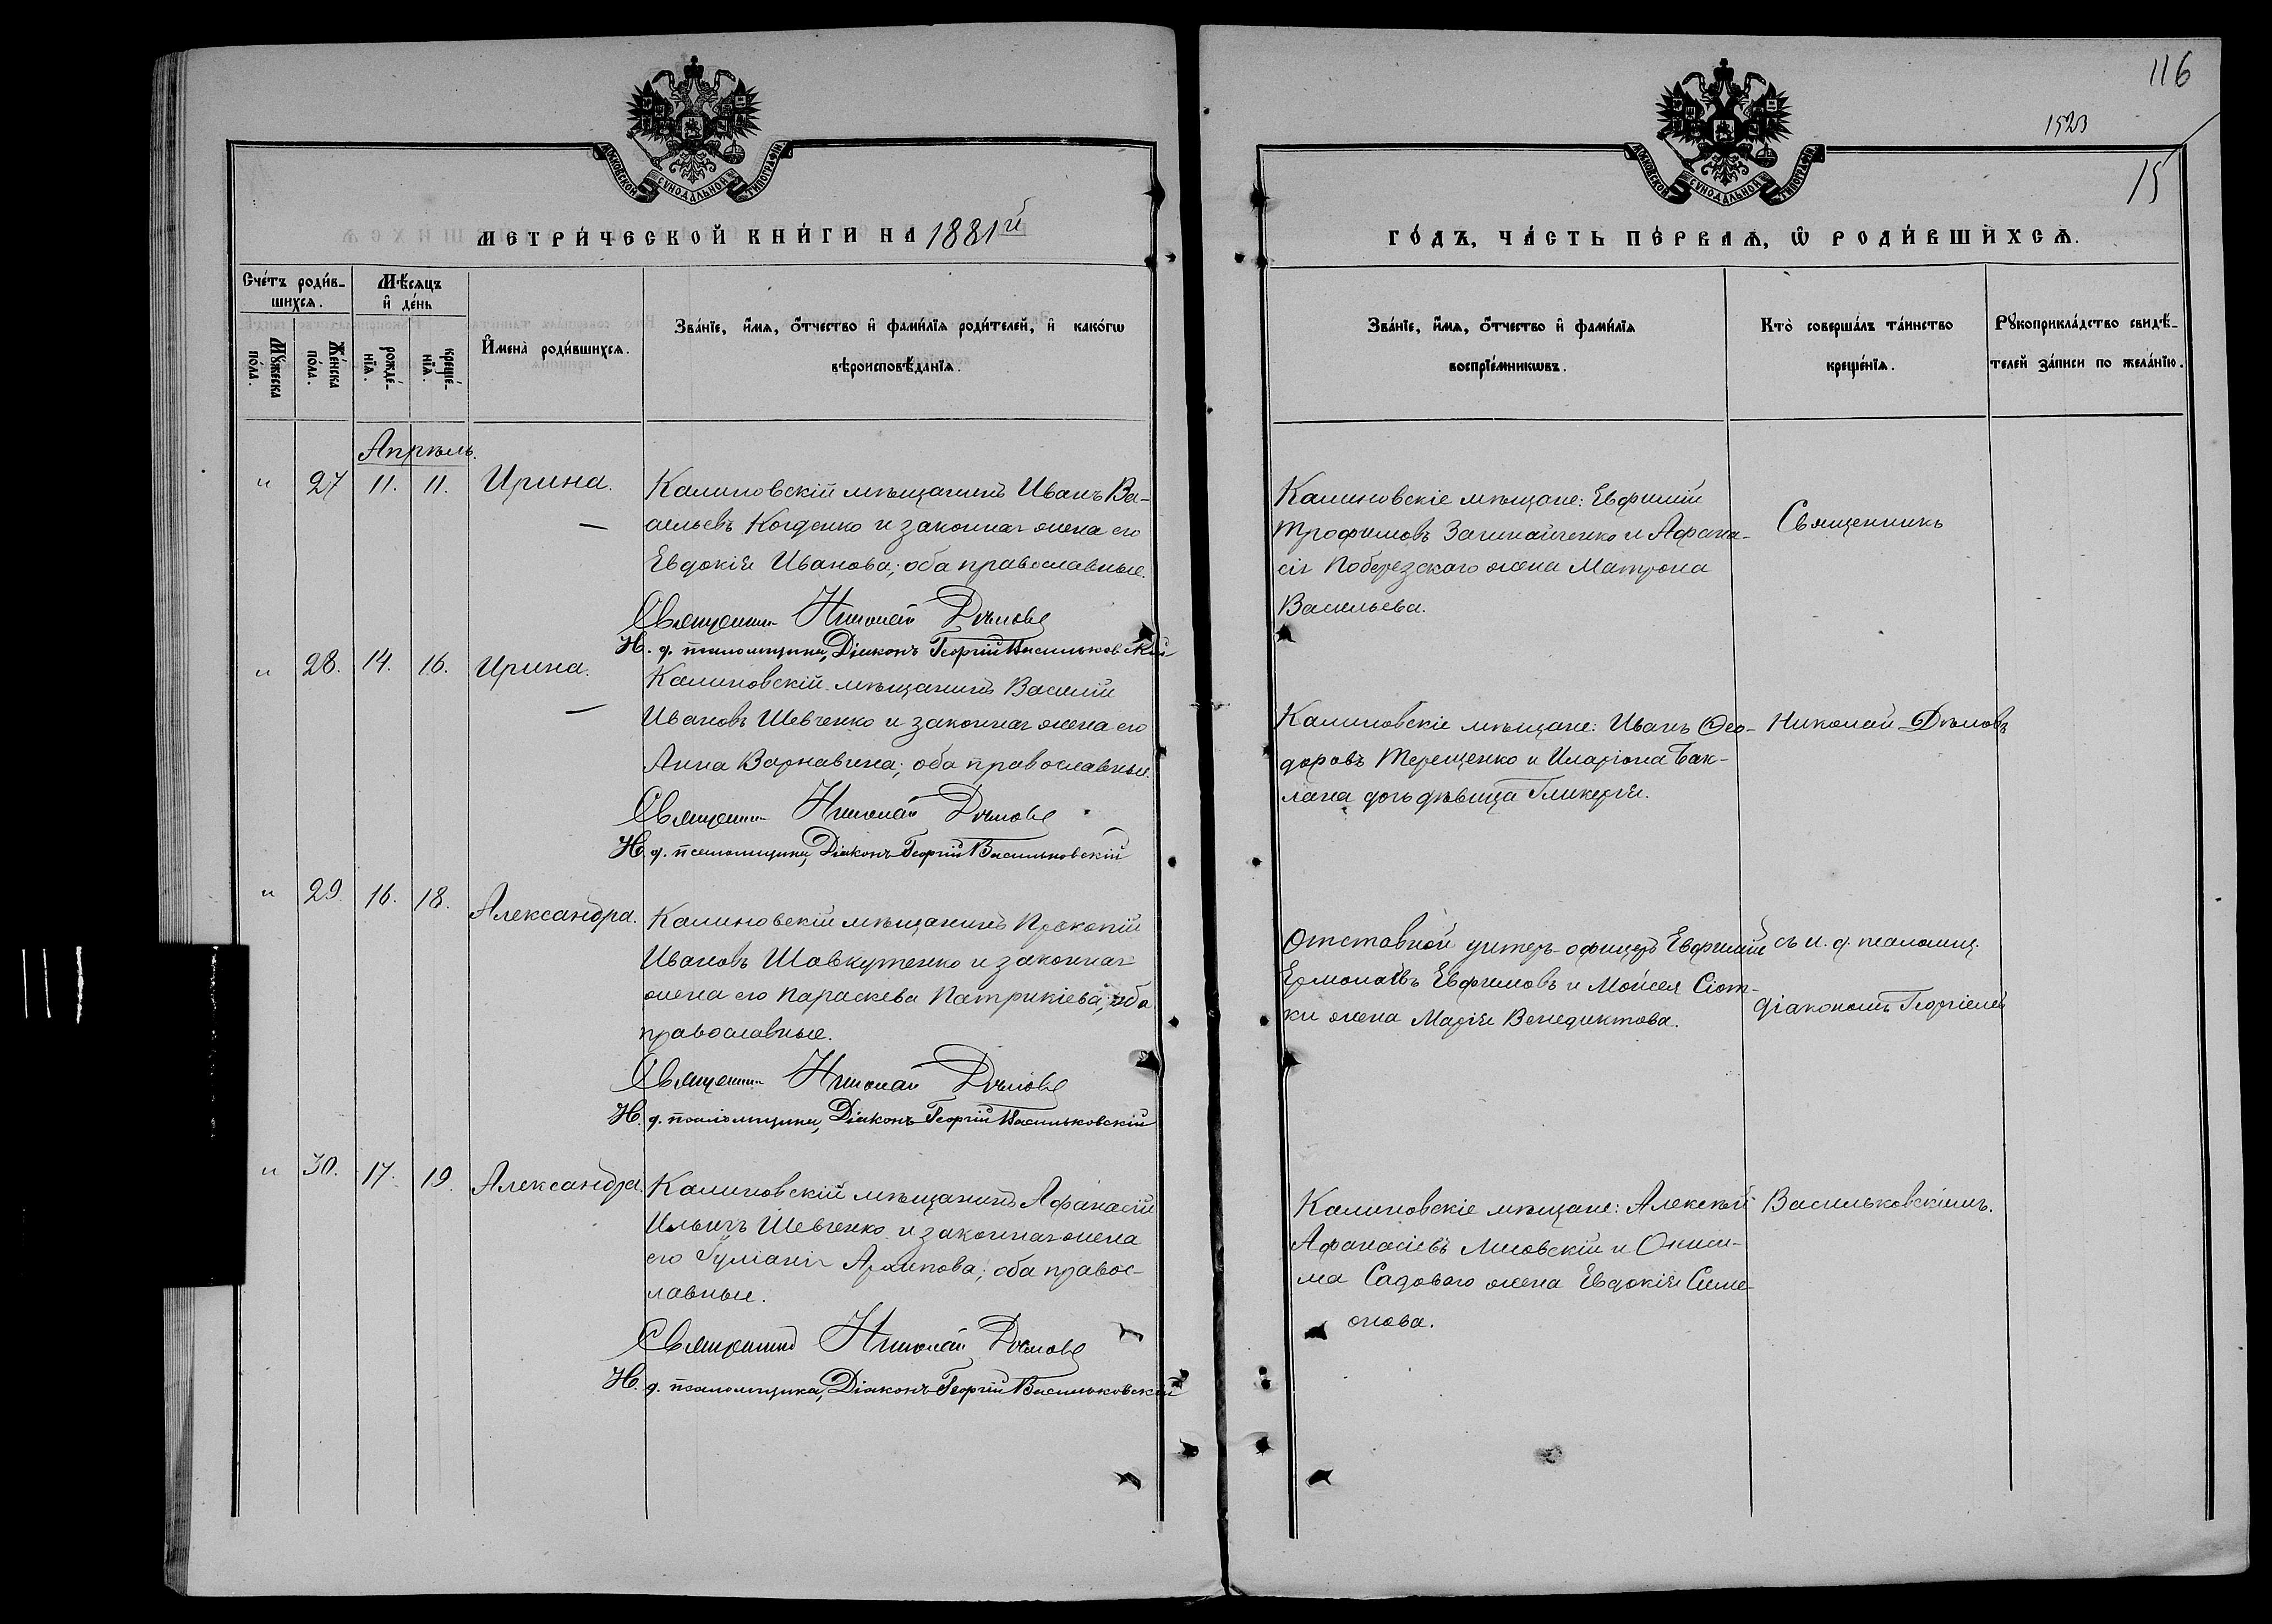 116
1523
15
МОСКОВСКОЙ СУНОДАЛЬНОЙ ТИПОГРАФІИ
МОСКОВСКОЙ СУНОДАЛЬНОЙ ТИПОГРАФІИ
МЕТРИ́ЧЕСКОЙ КНИ́ГИ НА 1881й
ГО́ДЪ, ЧА́СТЬ ПЕ́РВАѦ, Ѡ РОДИ́ВШИХСѦ.
Счетъ роди́в-
шихсѧ.
Мѣ́сѧцъ
и҆ де́нь
Мꙋ́жеска по́ла.
Же́нска по́ла.
рожде́-
нїѧ.
креще́-
нїѧ.
И҆мена̀ роди́вшихсѧ.
Зва́нїе, и҆́мѧ, ѻ҆́тчество и҆ фами́лїѧ роди́телей, и҆ како́гѡ
вѣроисповѣ́данїѧ.
Зва́нїе, и҆́мѧ, ѻ҆́тчество и҆ фами́лїѧ
воспрїе́мникѡвъ.
Кто̀ соверша́лъ та́инство
креще́нїѧ.
Рꙋкоприкла́дство свидѣ́-
телей за́писи по жела́нїю.
Апрѣль.
" 27 11. 11. Ирина.
Калиновскій мѣщанинъ Иванъ Ва-
сильевъ Когденко и законная жена его
Евдокія Иванова; оба православные.
Священник Николай Домовъ
И. д. псаломщика, Діаконъ Георгій Васильковскій
Калиновскіе мѣщане: Евфимій
Трофимовъ Зачинайченко и Афана-
сія Поберезскаго жена Матрона
Васильева.
Священникъ
" 28. 14. 16. Ирина.
Калиновскій мѣщанинъ Василій
Ивановъ Шевченко и законная жена его
Анна Варнавина; оба православные.
Священник Николай Домовъ
И. д. псаломщика, Діаконъ Георгій Васильковскій
Калиновскіе мѣщане: Иванъ Ѳео-
доровъ Терещенко и Иларіона Бак-
лана дочь дѣвица Гликерія.
Николай Домовъ
" 29. 16. 18. Александра.
Калиновскій мѣщанинъ Прокопій
Ивановъ Шавкутенко и законная
жена его Параскева Патрикіева; оба
православные.
Священник Николай Домовъ
И. д. псаломщика, Діаконъ Георгій Васильковскій
Отставной унтеръ-офицеръ Евфимій
Ермолаевъ Евфимовъ и Моисея Сіот-
ки жена Марія Венедиктова.
съ и. д. псаломщ.
діакономъ Георгіемъ
" 30. 17. 19. Александра.
Калиновскій мѣщанинъ Афанасій
Ильичъ Шевченко и законная жена
его Гуліанія Архипова; оба правос-
лавные.
Священникъ Николай Домовъ
И. д. псаломщика, Діаконъ Георгій Васильковскій
Калиновскіе мѣщане: Алексѣй
Афанасіевъ Лисовскій и Ониси-
ма Садоваго жена Евдокія Симе-
онова.
Васильковскимъ.